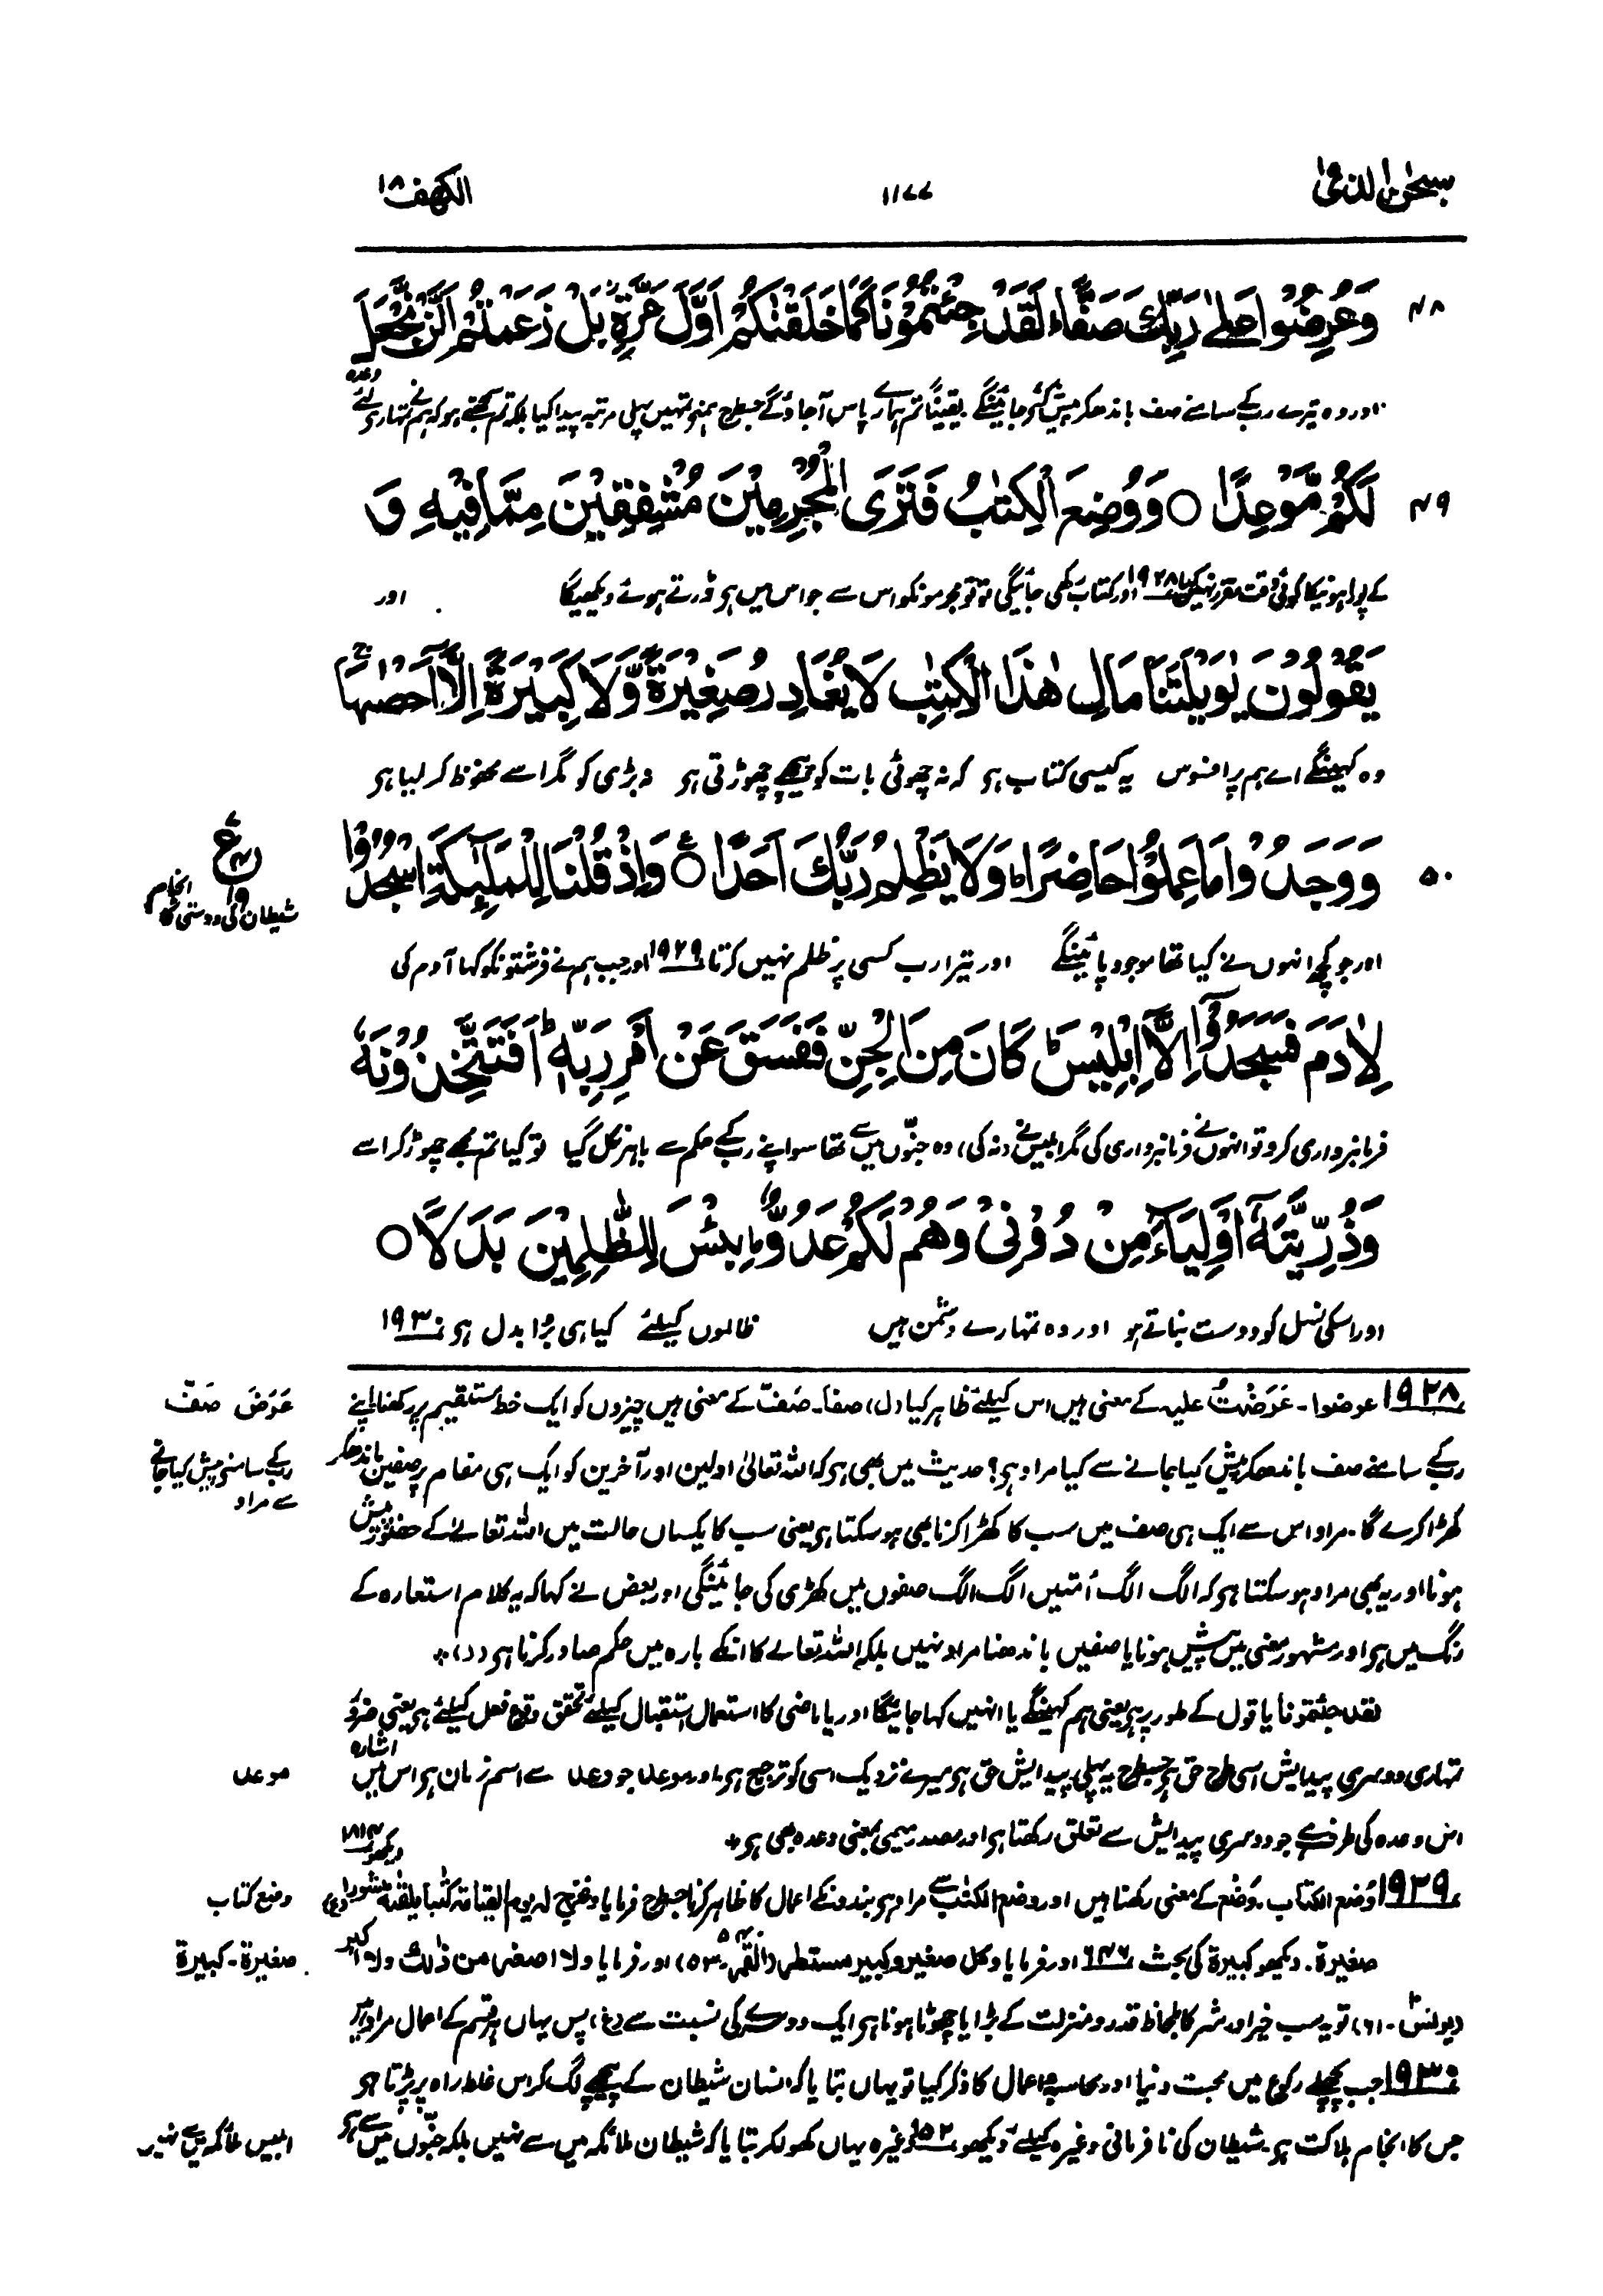 سبحٰن الذی ۱۵
۱۱۷۷
الکھف ۱۸
۴۸
وَعُرِضُوۡا عَلٰی رَبِّكَ صَفًّا ؕ لَقَدۡ جِئۡتُمُوۡنَا كَمَا خَلَقۡنٰكُمۡ اَوَّلَ مَرَّةٍۭ بَلۡ زَعَمۡتُمۡ اَلَّنۡ نَّجۡعَلَ
اور وہ تیرے رب کے سامنے صف باندھ کر پیش کئے جائینگے یقیناً تم ہمارے پاس آجاؤ گے جسطرح ہمنے تمہیں پہلی مرتبہ پیدا کیا بلکہ تم سمجھتے ہو کہ ہم نے تمہارے لئے وعدہ
۴۹
لَكُمۡ مَّوۡعِدًا ○ وَوُضِعَ الۡكِتٰبُ فَتَرَی الۡمُجۡرِمِیۡنَ مُشۡفِقِیۡنَ مِمَّا فِیۡهِ وَ
کے پورا ہونیکا کوئی وقت مقرر نہیں کیا ۱۹۲۸ اور کتاب رکھی جائیگی تو تو مجرمونکو اس سے جو اس میں ہو ڈرتے ہوئے دیکھیگا اور
یَقُوۡلُوۡنَ یٰوَیۡلَتَنَا مَالِ هٰذَا الۡكِتٰبِ لَا یُغَادِرُ صَغِیۡرَةً وَّلَا كَبِیۡرَةً اِلَّاۤ اَحۡصٰىهَا ۚ
وہ کہینگے اے ہم پر افسوس یہ کیسی کتاب ہو کہ نہ چھوٹی بات کو پیچھے چھوڑتی ہو نہ بڑی کو مگر اسے محفوظ کر لیا ہو
۵۰
وَوَجَدُوۡا مَا عَمِلُوۡا حَاضِرًا ؕ وَلَا یَظۡلِمُ رَبُّكَ اَحَدًا ○ وَاِذۡ قُلۡنَا لِلۡمَلٰٓئِكَةِ اسۡجُدُوۡا
ع
شیطان کی دوستی کا انجام
اور جو کچھ انہوں نے کیا تھا موجود پائینگے اور تیرا رب کسی پر ظلم نہیں کرتا ۱۹۲۹ اور جب ہم نے فرشتونکو کہا آدم کی
لِاٰدَمَ فَسَجَدُوۡۤا اِلَّاۤ اِبۡلِیۡسَ ؕ كَانَ مِنَ الۡجِنِّ فَفَسَقَ عَنۡ اَمۡرِ رَبِّهٖ ؕ اَفَتَتَّخِذُوۡنَهٗ
فرمانبرداری کرو تو انہوں نے فرمانبرداری کی مگر ابلیس نے (نہ کی) وہ جنّوں میں سے تھا سو اپنے رب کے حکم سے باہر نکل گیا تو کیا تم مجھے چھوڑ کر اسے
وَذُرِّیَّتَهٗۤ اَوۡلِیَآءَ مِنۡ دُوۡنِیۡ وَهُمۡ لَكُمۡ عَدُوٌّ ؕ بِئۡسَ لِلظّٰلِمِیۡنَ بَدَلًا ○
اور اسکی نسل کو دوست بناتے ہو اور وہ تمہارے دشمن ہیں ظالموں کیلئے کیا ہی بُرا بدل ہو ۱۹۳۰
۱۹۲۸ عرضوا۔ عَرَضْتُ علیہ کے معنی ہیں اس کیلئے ظاہر کیا (ل) صفا۔ صَفّ کے معنی ہیں چیزوں کو ایک خط مستقیم پر رکھنا اپنے
عَرَضَ صَفّ
رب کے سامنے صف باندھ کر پیش کیا جانے سے کیا مراد ہو؟ حدیث میں بھی ہو کہ اللہ تعالیٰ اولین اور آخرین کو ایک ہی مقام پر صفیں باندھکر
رب کے سامنے پیش کیا جانے سے مراد
کھڑا کرے گا۔ مراد اس سے ایک ہی صف میں سب کا کھڑا کرنا بھی ہو سکتا ہو یعنی سب کا یکساں حالت میں اللہ تعالےٰ کے حضور پیش
ہونا اور یہ بھی مراد ہو سکتا ہو کہ الگ الگ اُمتیں الگ الگ صفوں میں کھڑی کی جائینگی اور بعض نے کہا کہ یہ کلام استعارہ کے
رنگ میں ہو اور مشہور معنی میں پیش ہونا یا صفیں باندھنا مراد نہیں بلکہ اللہ تعالےٰ کا انکے بارہ میں حکم صادر کرنا ہو (د)*
لقد جئتمونا یا قول کے طور پر ہو یعنی ہم کہینگے یا انہیں کہا جائیگا اور یا ماضی کا استعمال استقبال کیلئے تحقق وقوع فعل کیلئے ہو یعنی ضرور
تمہاری دوسری پیدایش اسی طرح حق ہو جسطرح یہ پہلی پیدایش حق ہو میرے نزدیک اسی کو ترجیح ہو اور موعد جو وعد سے اسم زمان ہو اس میں اشارہ
موعد
اس وعدہ کی طرف ہے جو دوسری پیدایش سے تعلق رکھتا ہو اور مصدر میمی بمعنی وعدہ بھی ہو*
۱۹۲۹ وُضع الکتاب۔ وَضْع کے معنی رکھنا ہیں اور وضع الکتٰب سے مراد ہو بندونکے اعمال کا ظاہر کرنا جسطرح فرمایا ونخرج لہ یوم القیٰمۃ کتٰبا یلقٰہ منشورا (غ) دیکھو
وضع کتاب
صغیرۃ۔ دیکھو کبیرۃ کی بحث ۶۴۶ اور فرمایا وکل صغیر وکبیر مستطر (القمر ۵۴۔۵۳) اور فرمایا ولا اصغر من ذٰلک ولا اکبر
صغیرۃ۔ کبیرۃ
(یونس۔۶۱) تو یہ سب خیر اور شر کا بلحاظ قدر و منزلت کے بڑا یا چھوٹا ہونا ہو ایک دوسرے کی نسبت سے (غ) پس یہاں ہر قسم کے اعمال مراد ہیں
۱۹۳۰ جب پچھلے رکوع میں محبت دنیا اور محاسبہ اعمال کا ذکر کیا تو یہاں بتایا کہ انسان شیطان کے پیچھے لگ کر اس غلط راہ پر پڑتا ہو
جس کا انجام ہلاکت ہو۔ شیطان کی نافرمانی وغیرہ کیلئے دیکھو ۵۲ وغیرہ یہاں کھولکر بتایا کہ شیطان ملائکہ میں سے نہیں بلکہ جنّوں میں سے ہو
ابلیس ملائکہ میں سے نہیں